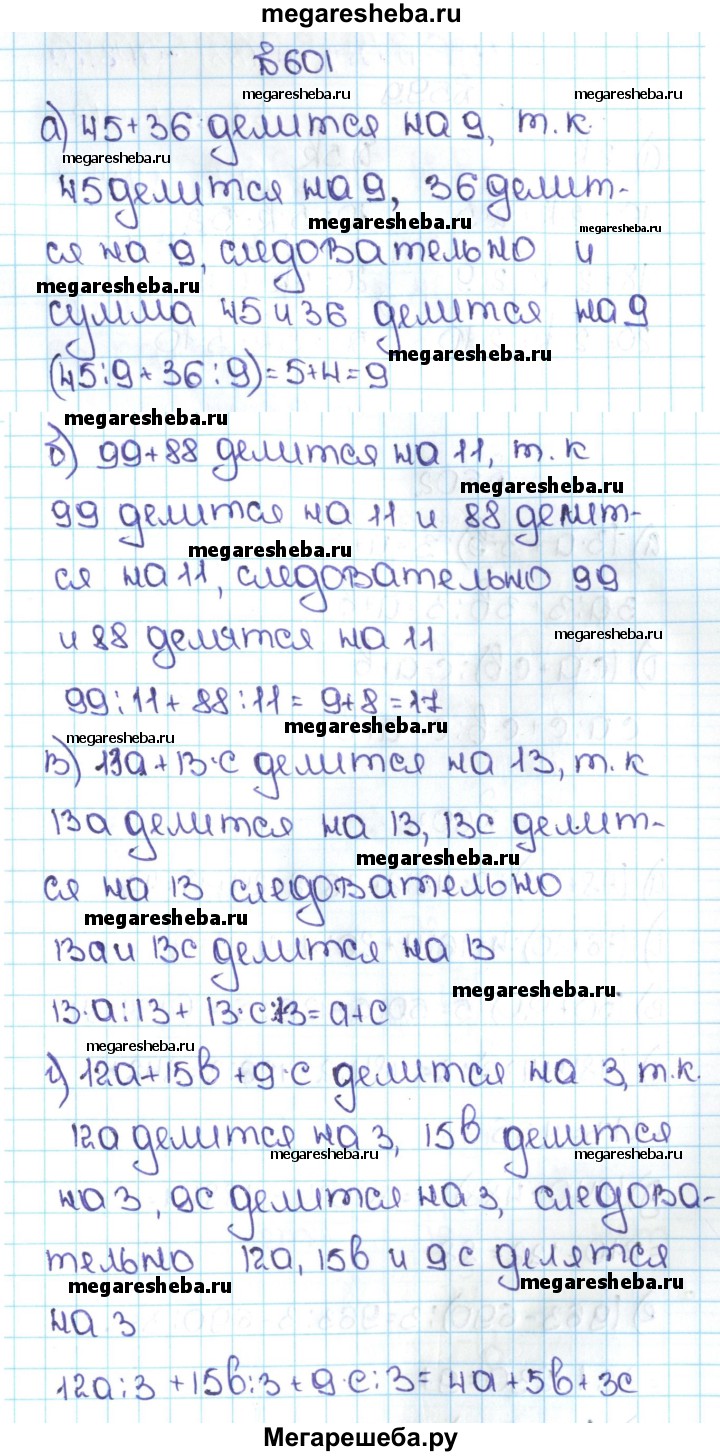 megaresheba.ru
№601
megaresheba.ru megaresheba.ru
а) 45+36 делится на 9, т.к.
megaresheba.ru
45 делится на 9, 36 делит-
megaresheba.ru megaresheba.ru
ся на 9, следовательно и
megaresheba.ru
сумма 45 и 36 делится на 9
megaresheba.ru
(45:9+36:9)=5+4=9
megaresheba.ru
б) 99+88 делится на 11, т.к
megaresheba.ru
99 делится на 11 и 88 делит-
megaresheba.ru
ся на 11, следовательно 99
и 88 делятся на 11
megaresheba.ru
99:11+88:11=9+8=17
megaresheba.ru
megaresheba.ru
в) 13а+13·с делится на 13, т.к
13а делится на 13, 13с делит-
megaresheba.ru
ся на 13 следовательно
megaresheba.ru
13а и 13с делится на 13
megaresheba.ru.
13·а:13+13·с:13=а+с
megaresheba.ru
г) 12а+15в+9·с делится на 3, т.к.
12а делится на 3, 15в делится
megaresheba.ru megaresheba.ru
на 3, 9с делится на 3, следова-
тельно 12а, 15в и 9с делятся
megaresheba.ru megaresheba.ru
на 3
12а:3+15в:3+9·с:3=4а+5в+3с
Мегарешеба.ру